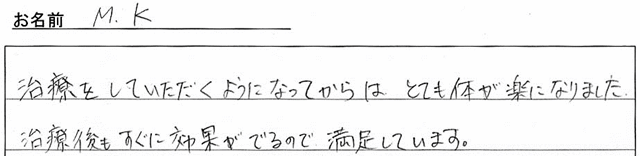 お名前 M.K
治療をしていただくようになってからは とても体が楽になりました.
治療後もすぐに効果がでるので 満足しています。